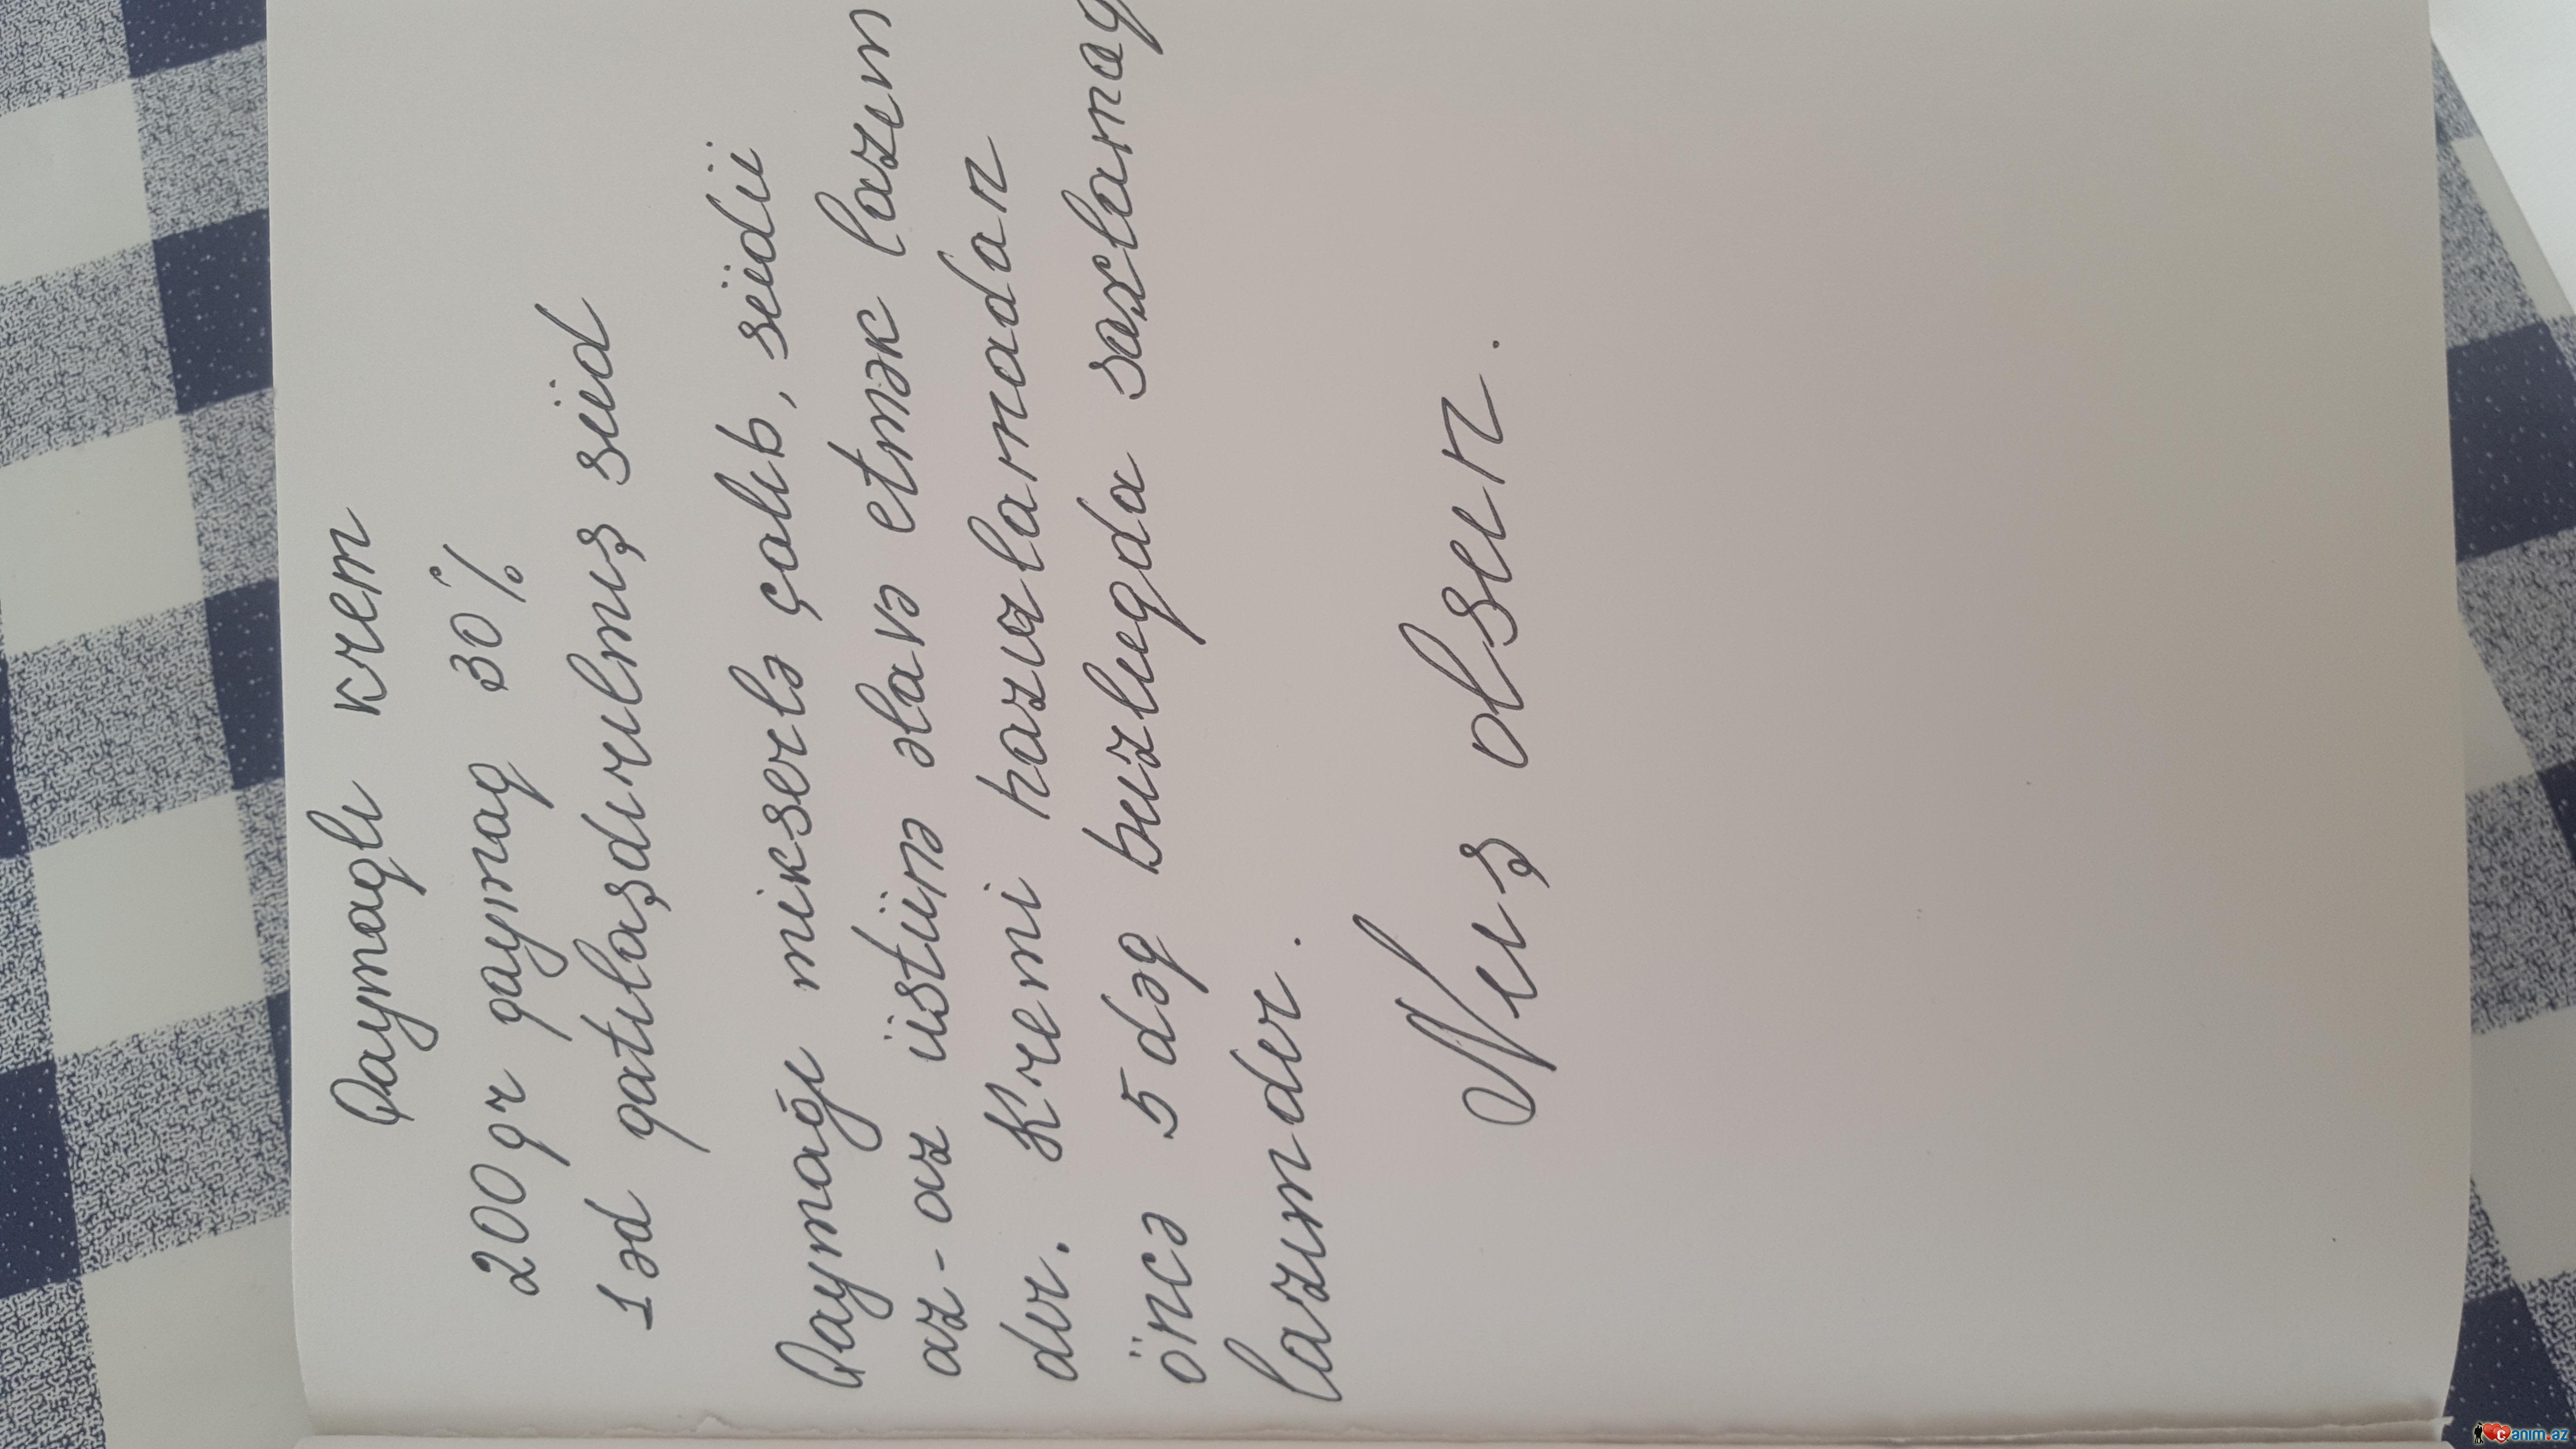 Qaymaqlı krem
200 qr qaymaq 30%
1 əd qatılaşdırılmış süd
Qaymağı mikserlə çalıb, südü
az-az üstünə əlavə etmək lazım
dır. Kremi hazırlamadan
öncə 5 dəq buzluqda saxlamaq
lazımdır.
Nuş olsun.
canim.az